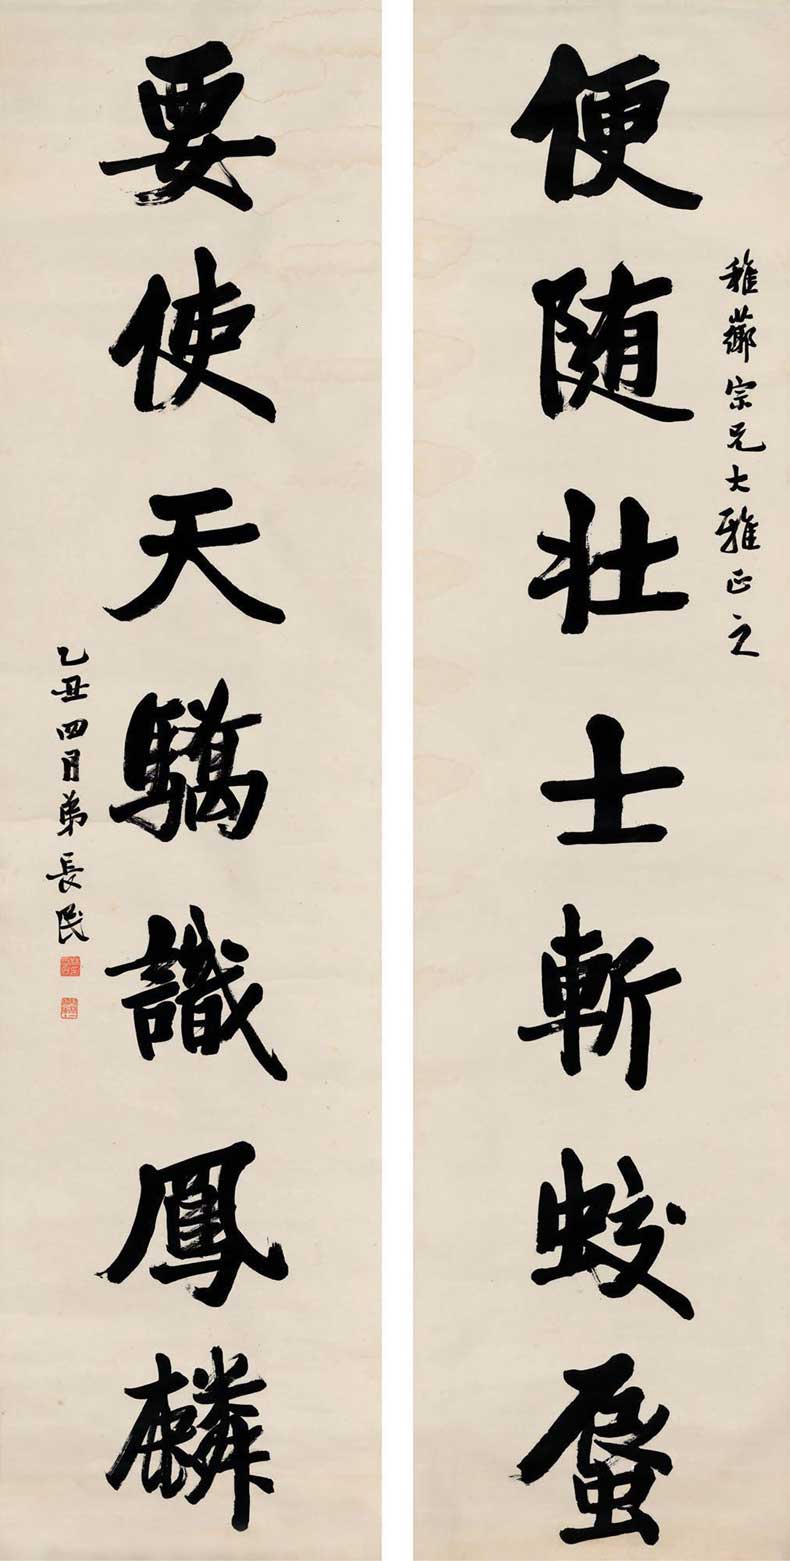 稚薌宗兄大雅正之
便随壮士斬蛟蜃
要使天驕識鳳麟
乙丑四月弟長民